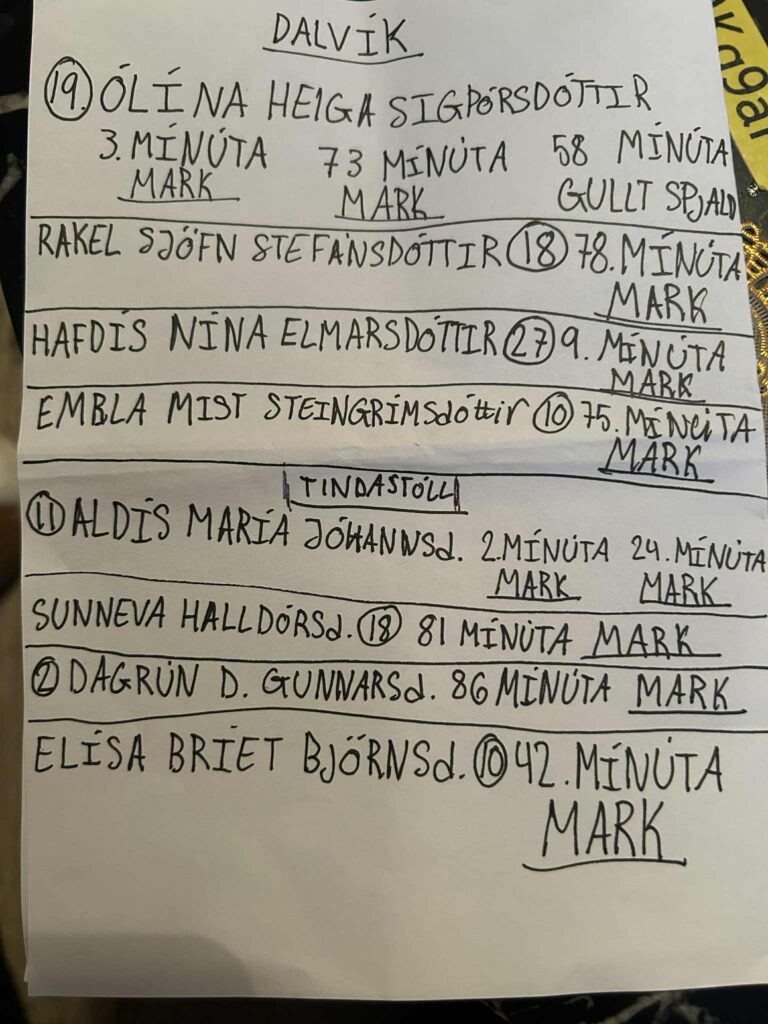 DALVÍK
19. ÓLÍNA HELGA SIGÞÓRSDÓTTIR
3. MÍNÚTA MARK 73 MÍNÚTA MARK 58 MÍNÚTA GULLT SPJALD
RAKEL SJÖFN STEFÁNSDÓTTIR 18 78. MÍNÚTA
MARK
HAFDÍS NÍNA ELMARSDÓTTIR 27 9. MÍNÚTA
MARK
EMBLA MIST STEINGRÍMSdóttir 10 75. MÍNÚTA
MARK
TINDASTÓLL
11 ALDÍS MARÍA JÓHANNSd. 2. MÍNÚTA MARK 24. MÍNÚTA MARK
SUNNEVA HALLDÓRSd. 18 81 MÍNÚTA MARK
2 DAGRÚN D. GUNNARSd. 86 MÍNÚTA MARK
ELÍSA BRÍET BJÖRNSd. 10 42. MÍNÚTA
MARK